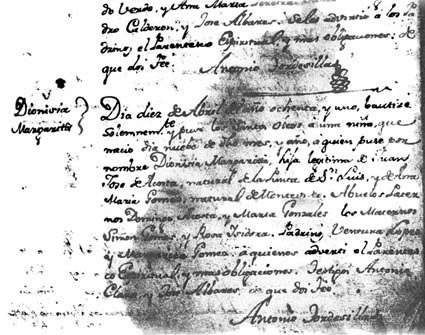 do Verdo, y Ana Maria
dro Calderon, y Jose Albares. les adverti a los Pa
drino, el Parentesco Espiritual, y mas obligaciones: de
que doi Fee.
Antonio Tordesillas
Dionisia
Margarita
Dia diez de Abril del año ochenta, y uno, bautize
Solemnem.te y puse los Santos Oleos, a una niña, que
nacio dia nuebe de dho mes, y año, a quien puse por
nombre Dionisia Margarita, hija legitima de Juan
Jose de Acosta, natural de la Punta de S.n Luis, y de
Maria Gomez, natural de Abuelos Pater
nos Domingo Acosta, y Maria Gonzales los Maternos
Simon y Rosa Isidora. Padrino, Ventura Lopez
y Margarita Gomez a quienes adverti el Parentes
co Espiritual, y mas obligaciones. Testigos Antonio
y Jose Albares, de que doi Fee.
Antonio Tordesillas